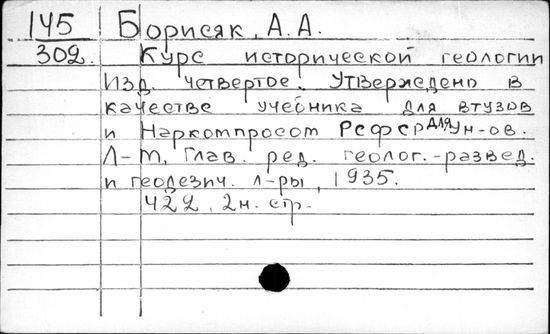 145 Борисяк, А. А.
302. Курс исторической геологии
Изд. четвертое. Утверждено в
качестве учебника для втузов
и Наркомпросом РСФСР для ун-ов.
Л-М, Глав. ред. геолог.-развед.
и геодезич. л-ры, 1935.
422, 2н. стр.